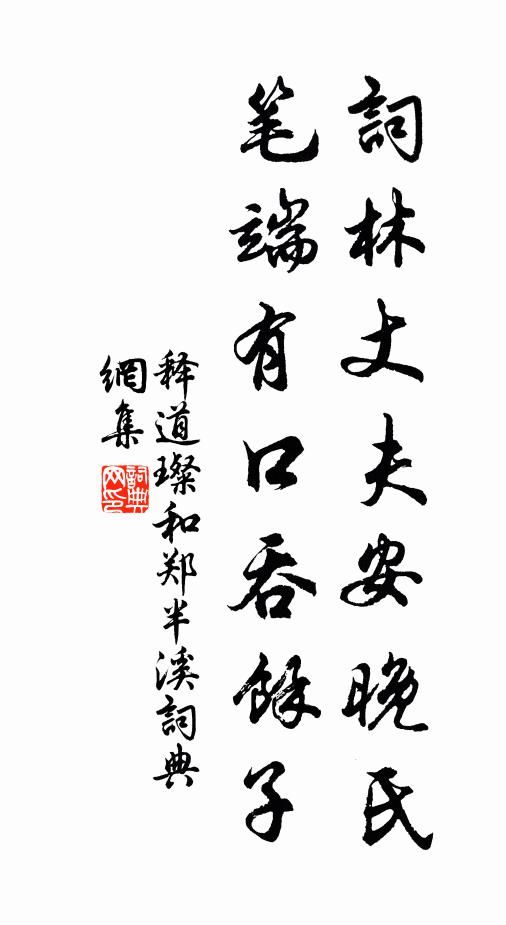 詞林丈夫安晚氏
笔端有口吞餘子
释道璨和郑半溪詞典
網集
詞典網印